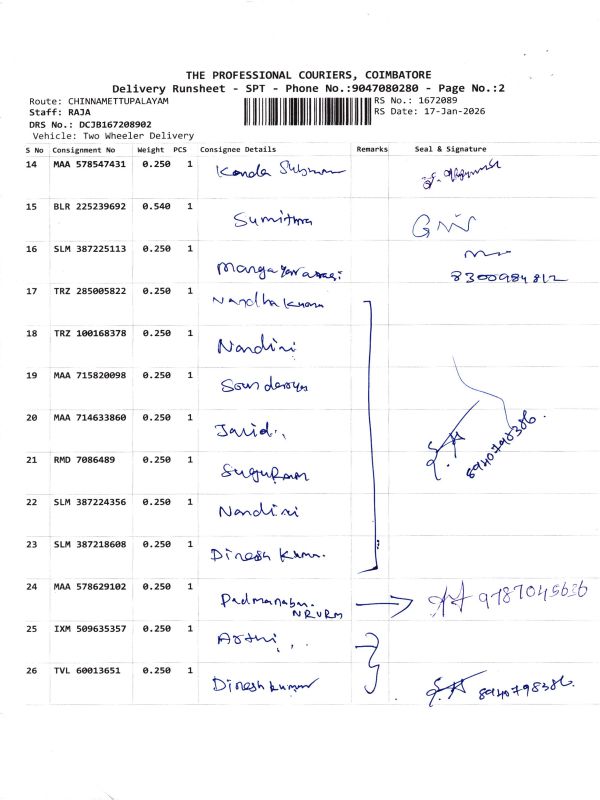 THE PROFESSIONAL COURIERS, COIMBATORE
Delivery Runsheet - SPT - Phone No.:9047080280 - Page No.:2
Route: CHINNAMETTUPALAYAM
RS No.: 1672089
Staff: RAJA
RS Date: 17-Jan-2026
DRS No.: DCJB167208902
Vehicle: Two Wheeler Delivery
S No Consignment No Weight PCS Consignee Details Remarks Seal & Signature
14 MAA 578547431 0.250 1 Kanda
15 BLR 225239692 0.540 1 Sumithra
16 SLM 387225113 0.250 1
8300984812
17 TRZ 285005822 0.250 1
18 TRZ 100168378 0.250 1 Nandini
19 MAA 715820098 0.250 1
20 MAA 714633860 0.250 1
8940798386.
21 RMD 7086489 0.250 1 SuguRam
22 SLM 387224356 0.250 1 Nandini
23 SLM 387218608 0.250 1 Dinesh Kumar
24 MAA 578629102 0.250 1 Padmanaban. 9787045656
NRVRM
25 IXM 509635357 0.250 1 Arthi
26 TVL 60013651 0.250 1 Dinesh kumar 8940798386.